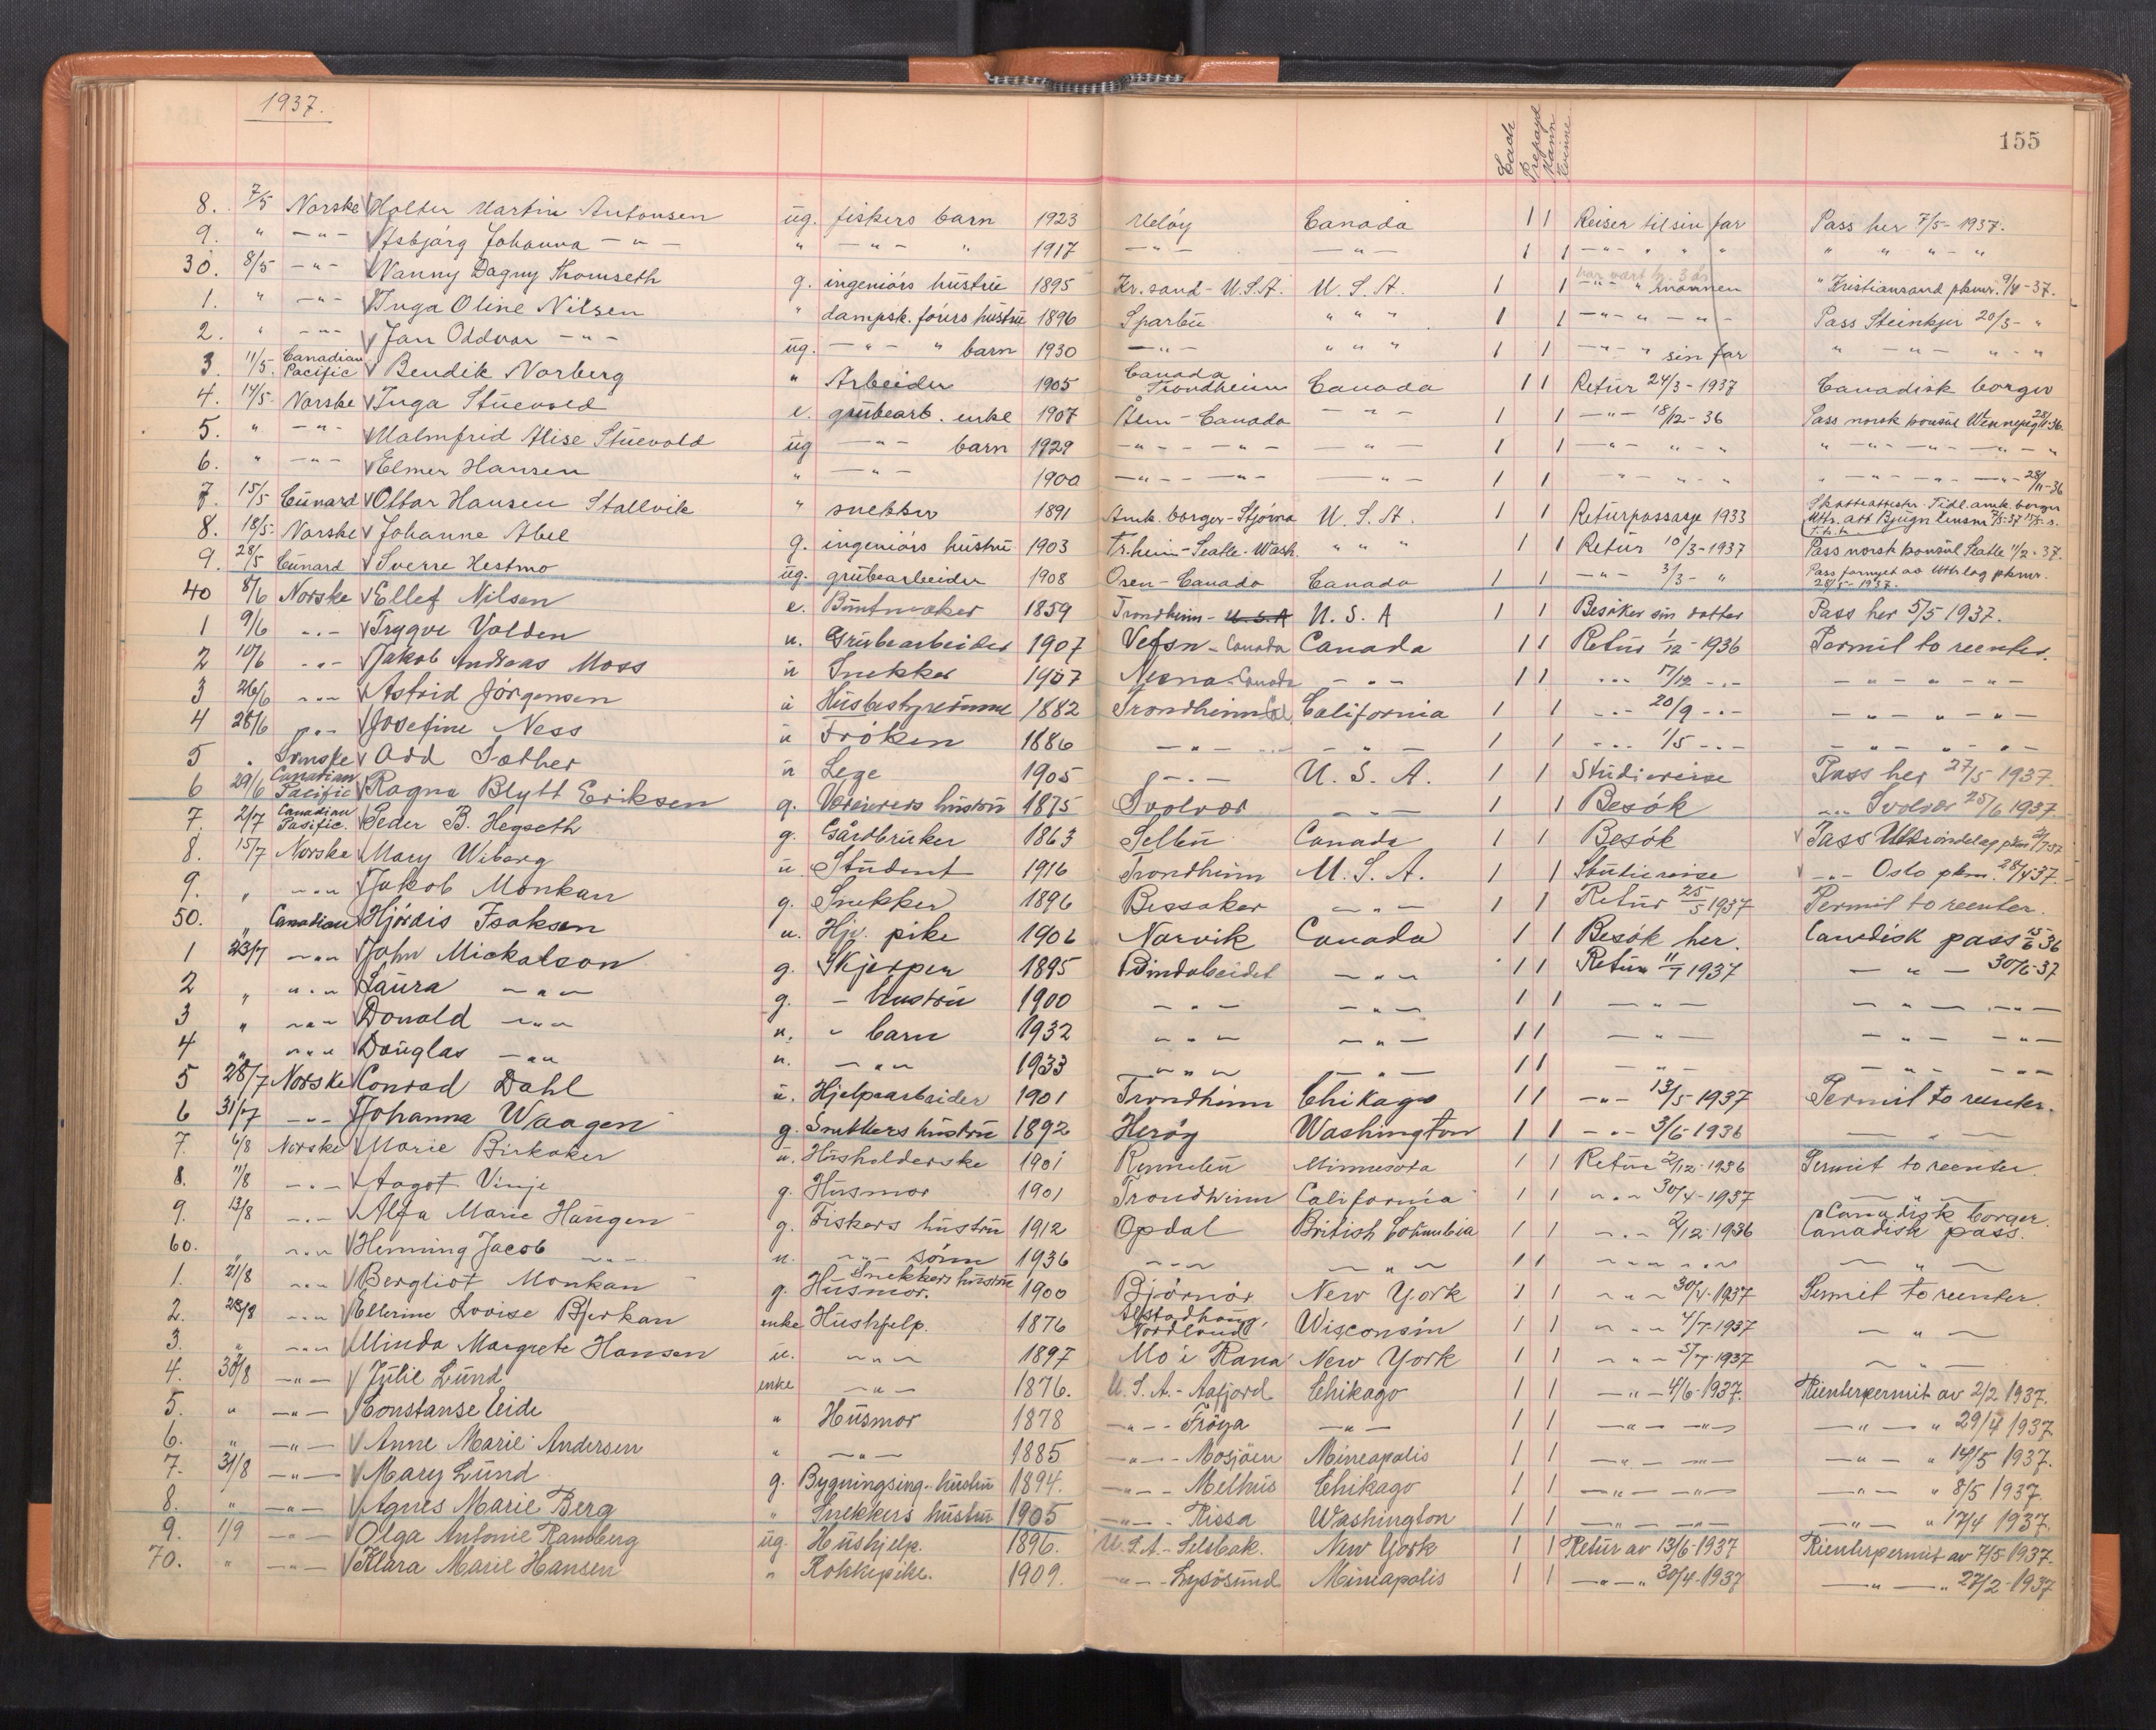 1937.
155
Cash Prepayd Mann Kvinne
8. 7/5 Norske Holter Martin Antonsen ug. fiskers barn 1923 Meløy Canada 1 1 Reiser til sin far Pass her 7/5-1937.
9. " -"- Asbjørg Johanna -"- " -"- " 1917 -"- -"- 1 1 -"- " " " " " " "
30. 8/5 -"- Nanny Dagny Thomseth g. ingeniørs hustru 1895 Kr.sand-U.S.A. U.S.A. 1 1 har vært hj. 3 år -"- " mannen " Kristiansand pkmr. 9/4-37.
1. " -"- Inga Oline Nilsen " dampsk. førers hustru 1896 Sparbu " " " 1 1 -"- " -"- Pass Steinkjer 20/3- "
2. " -"- Jan Oddvar -"- ug. -"- " barn 1930 -"- " " " 1 1 -"- " sin far " -"- " - "
3. 11/5. Canadian Pacific Bendik Norberg " Arbeider 1905 Canada Trondheim Canada 1 1 Retur 24/3-1937 Canadisk borger
4. 14/5. Norske Inga Stuevold e. grubearb. enke 1907 Ålen-Canada -"- 1 1 -"- 18/12-36 Pass norsk konsul Wennepeg 28/11-36.
5. " -"- Malmfrid Alise Stuevold ug -"- barn 1929 -"- -"- -"- 1 1 -"- " - " " -"- -"- -"- "
6. " -"- Elmer Hansen " -"- 1900 -"- -"- -"- 1 1 -"- " - " " -"- -"- -"- 28/11-36
7. 15/5 Cunard Ottar Hansen Stallvik " snekker 1891 Amk. borger-Stjørna U.S.A. 1 1 Returpassasje 1933 Skatteattester. Tidl. amk. borger Uttr. att Bjugn lensm. 7/5-37
8. 18/5. Norske Johanne Abel g. ingeniørs hustru 1903 Tr.heim-Seatle-Wash. " " " 1 1 Retur 10/3-1937 Pass norsk konsul Seatle 11/2-37.
9. 28/5 Cunard Sverre Hestmo ug. grubearbeider 1908 Osen-Canada Canada 1 1 -"- 3/3- " Pass fornyet av Uttrlag pkmr. 28/5-1937.
40 8/6 Norske Ellef Nilsen e. Buntmaker 1859 Trondheim-U.S.A U.S.A 1 1 Besøker sin datter Pass her 5/5 1937.
1 9/6 -"- Trygve Volden u. Grubearbeider 1907 Vefsn-Canada Canada 1 1 Retur 1/12-1936 Permit to reenter.
2 10/6 -"- Jakob Andreas Moss u Snekker 1907 Nesna-Canada -"- 1 1 -"- 17/12 -"- -"-"-"-
3 26/6 -"- Astrid Jørgensen u Husbestyrerinne 1882 Trondheim Cal California 1 1 -"- 20/9 -"- -"-"-"-
4 28/6 -"- Josefine Ness u Frøken 1886 -"- -"- 1 1 -"- 1/5 -"- -"-"-"-
5 " Svenske Odd Sæther u Lege 1905 -"- U.S.A. 1 1 Studiereise Pass her 27/5 1937.
6 29/6 Canadian Pacific Ragna Blytt Eriksen g. Væreiers hustru 1875 Svolvær -"- 1 1 Besøk -"- Svolvær 25/6 1937
7. 2/7 Canadian Pasific. Peder B. Hegseth g. Gårdbruker 1863 Selbu Canada 1 1 Besøk Pass Uttrøndelag pkm 2/7 37
8. 15/7 Norske Mary Wiberg u. Student 1916 Trondheim U.S.A. 1 1 Studiereise -"- Oslo pkm. 28/4 37.
9. " -"- Jakob Monkan g. Snekker 1896 Bessaker -"- 1 1 Retur 25/5 1937 Permit to reenter.
50. " Canadian Hjørdis Isaksen u. Hj. pike 1906 Narvik Canada 1 1 Besøk her. Canadisk pass 15/6 36
1 23/7 -"- John Mickalson g. Skjerper 1895 Bindalseidet -"- 1 1 Retur 11/7 1937 -"- 30/6-37
2 " -"- Laura -"- g. - hustru 1900 -"- -"- 1 1 -"- -"- -"-
3 " -"- Donald -"- u. " barn 1932 -"- -"- 1 1 -"- -"- -"-
4 " -"- Douglas -"- u. -"- 1933 -"- -"- 1 1 -"- -"- -"-
5 28/7 Norske Conrad Dahl u. Hjelpearbeider 1901 Trondheim Chikago 1 1 -"- 13/5-1937 Permit to reenter.
6 31/7 -"- Johanna Waagen g. Snekkers hustru 1892 Herøy Washington 1 1 -"- 3/6-1936 -"-
7. 6/8 Norske Marie Birkaker u. Husholderske 1901 Rennebu Minnesota 1 1 Retur 2/12-1936 Permit to reenter.
8. 11/8 -"- Aagot Vinje g. Husmor 1901 Trondheim California 1 1 -"- 30/4-1937 -"-
9. 13/8 -"- Alfa Marie Haugen g. Fiskers hustru 1912 Opdal British Columbia 1 1 -"- 2/12-1936 Canadisk borger. Canadisk pass.
60. " -"- Henning Jacob -"- u. -"- sønn 1936 -"- -"- 1 1 -"- "-" -"-
1. 21/8 -"- Bergliot Monkan g. Snekkers hustru Husmor. 1900 Bjørnør New York 1 1 -"- 30/4-1937 Permit to reenter.
2. 28/8 -"- Ellerine Lovise Bjerkan enke Hushjelp. 1876 Alstadhaug, Nordland Wisconsin 1 1 -"- 4/7-1937 -"-
3. " -"- Minda Margrete Hansen u. -"- 1897 Mo i Rana New York 1 1 -"- 5/7-1937 -"-
4. 30/8 -"- Julie Lund enke -"- 1876. U.S.A.-Aafjord Chikago 1 1 -"- 4/6-1937. Rienterpermit av 2/2 1937.
5. " -"- Constanse Eide " Husmor 1878 -"- - Frøya -"- 1 1 -"- -"- -"- " 29/4 1937
6. " -"- Anne Marie Andersen " -"- 1885 -"- - Mosjøen Mineapolis 1 1 -"- -"- -"- " 14/5 1937.
7. 31/8 -"- Mary Lund g. Bygningsing. hustru 1894. -"- - Melhus Chikago 1 1 -"- -"- -"- " 8/5 1937.
8. " -"- Agnes Marie Berg " Snekkers hustru 1905 -"- - Rissa Washington 1 1 -"- -"- -"- " 17/4 1937.
9. 1/9 -"- Olga Antonie Ramberg ug. Hushjelp. 1896. U.S.A.-Selsbak. New York 1 1 Retur av 13/6-1937 Rienterpermit av 7/5-1937.
70. " -"- Klara Marie Hansen " Kokkepike. 1909. -"- - Lysøsund Mineapolis 1 1 -"- " 30/4-1937 -"- " 27/2-1937